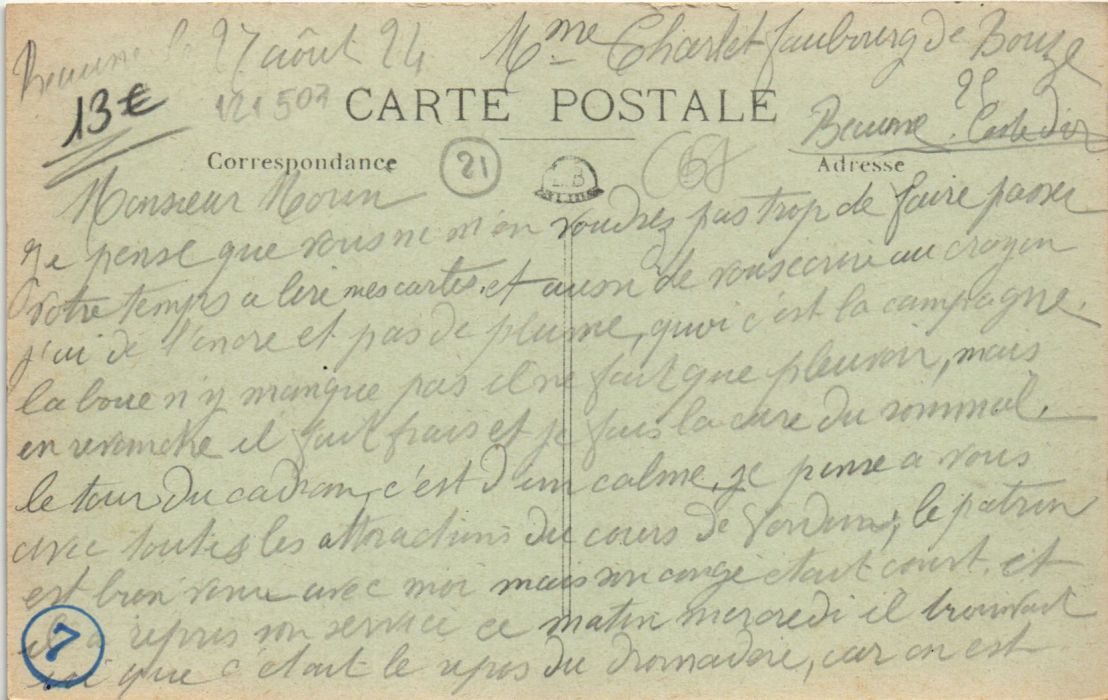 Beaune le 27 août 24 Mme Charlet faubourg de Bouze
25
13€
121507
CARTE POSTALE
Beaune. Côte d'or
Correspondance
21
Adresse
Monsieur Morin
Je pense que vous ne m'en voudrez pas trop de faire passer
votre temps a lire mes cartes, et aussi de vous ecrire au crayon
j'ai de l'encre et pas de plume, quoi c'est la campagne.
la boue n'y manque pas il ne fait que pleuvoir, mais
en revanche il fait frais et je fais la cure du sommeil.
le tour du cadran, c'est d'un calme. je pense a vous
avec toutes les attractions du cours de Verdun, le patron
est bien venu avec moi mais son congé etait court. et
il a repris son service ce matin mercredi il trouvait
ici que c'était le repos du dromadaire, car on est
7